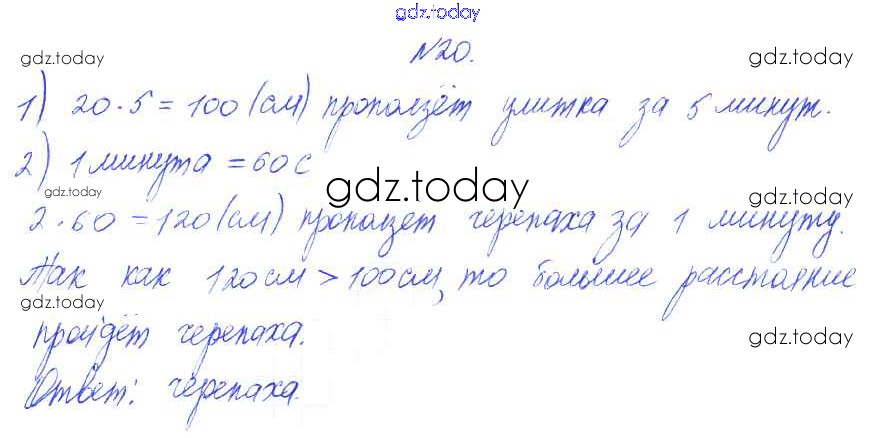 gdz.today
№20.
gdz.today gdz.today
1) 20·5=100(см) проползёт улитка за 5 минут.
2) 1 минута =60с
gdz.today gdz.today gdz.today
2·60=120(см) проползет черепаха за 1 минуту.
Так как 120см>100см, то большее расстояние
gdz.today
пройдёт черепаха.
gdz.today
Ответ: черепаха.